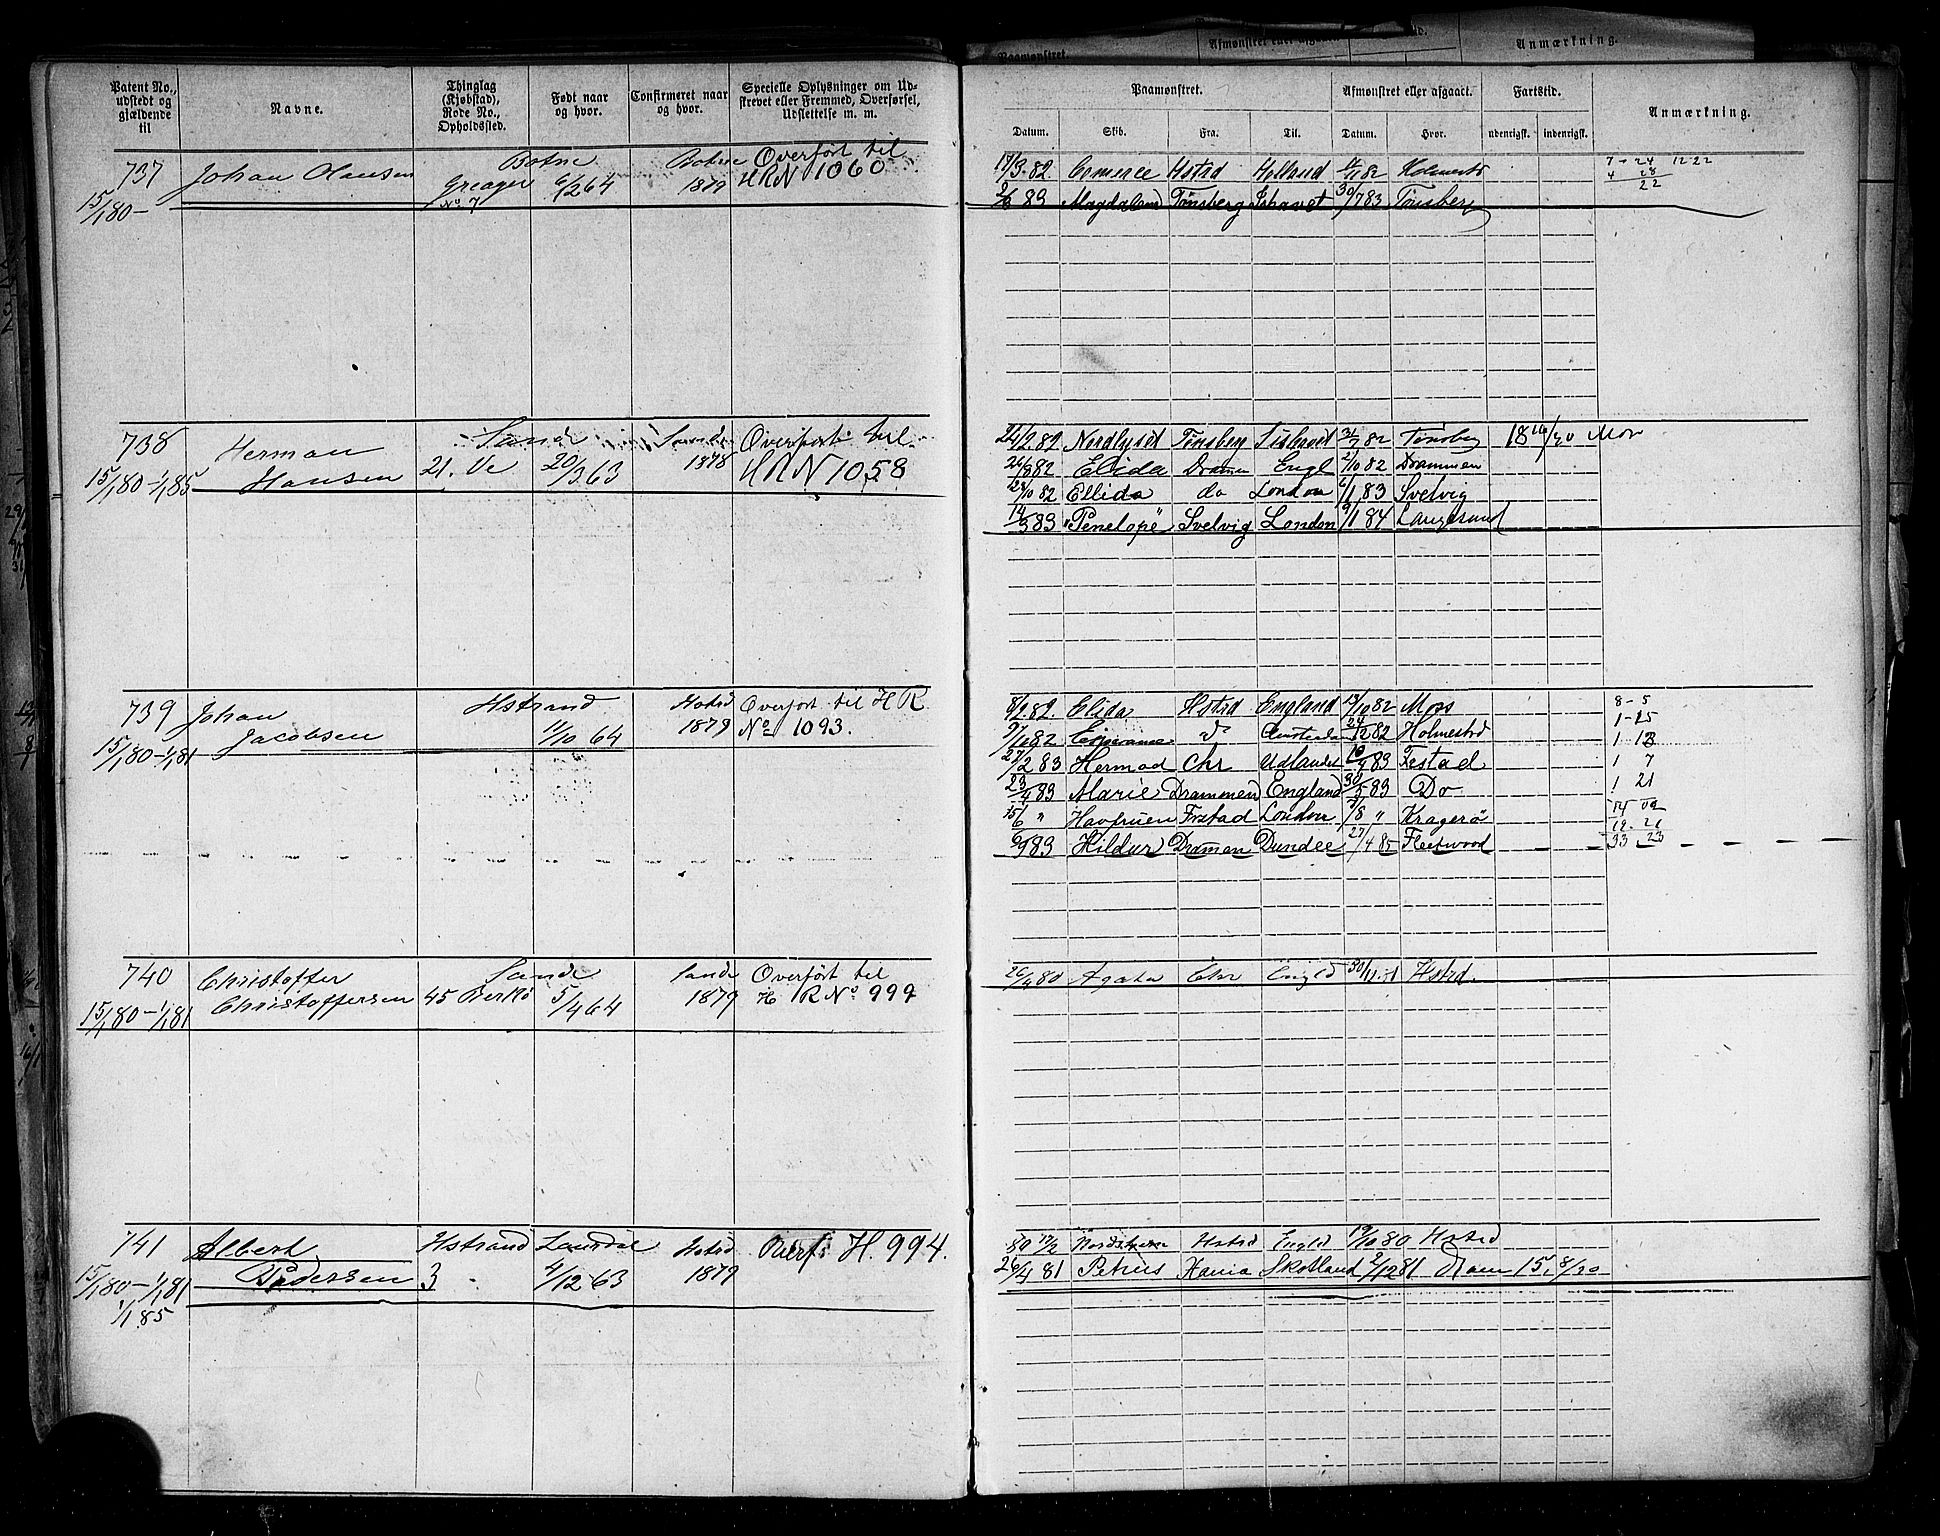 Patent No., udstedt og gjældende til
Navne.
Thinglag (Kjøbstad), Rode No., Opholdssted.
Født naar og hvor.
Confirmeret naar og hvor.
Specielle Oplysninger om Udstrevet eller Fremmed, Overførsel, Udslettelse m. m.
737 Johan Olausen Botne Botne Overført til
15/1 80- Greager 6/2 64 1879 HRN 1060
No 7
738 Herman Sande Sande Overført til
15/1 80-1/1 85 Hansen 21. Ve 20/3 63 1878 HRN 1058
739 Johan Hstrand Hstrd Overført til HR
15/1 80-1/1 81 Jacobsen 11/10 64 1879 No 1093.
740 Christoffer Sande Sande Overført til
15/1 80-1/1 81 Christoffersen 45 Berkö 5/4 64 1879 H RNo 999
741 Albert Hstrand Laurdal Hstrd Overf H. 994.
15/1 80-1/1 81 Pedersen 3 4/12 63 1879
1/1 85
Paamønstret. Afmønstret eller afgaaet. Fartstid. Anmærkning.
Datum. Skib. Fra. Til. Datum. Hvor. udenrigsk. indenrigsk.
3.82 Comerce Hstrd Holland 82 Holmestr 7-24 12-22
4 28
22
83 Magdalena Tönsberg Ishavet 30/7 83 Tönsberg
24/2.82 Nordlyset Tönsberg Ishavet 82 Tönsberg
26/8 82 Elida Dramen Engl 2/10 82 Drammen
28/10 82 Ellida do London 6/1 83 Svelvig
14/3 83 "Penelope" Svelvig London 9/1 84 Langesund
8/2.82. Elida Hstrd England 13/10 82 Moss 8-5
82 Esperance do 24/12 82 Holmestrd 1-25
27/2 83 Hermod Chr Udlandet 83 Festad 1 7
23/4 83 Marie Drammen England 30/5 83 Do 1 21
15/6 " Havfruen Frstad London 7/8 " Kragerö
6/9 83 Hildur Dramen Dundee 27/4 85 Fleetwood 33 23
26/4 80 Agata Chr Engld 30/11 Hstrd
80 17/2 Hstrd Engld 19/10 80 Hstrd
26/4 81 Petrus Xania Skotland 2/12 81 Dram 15, 8/30